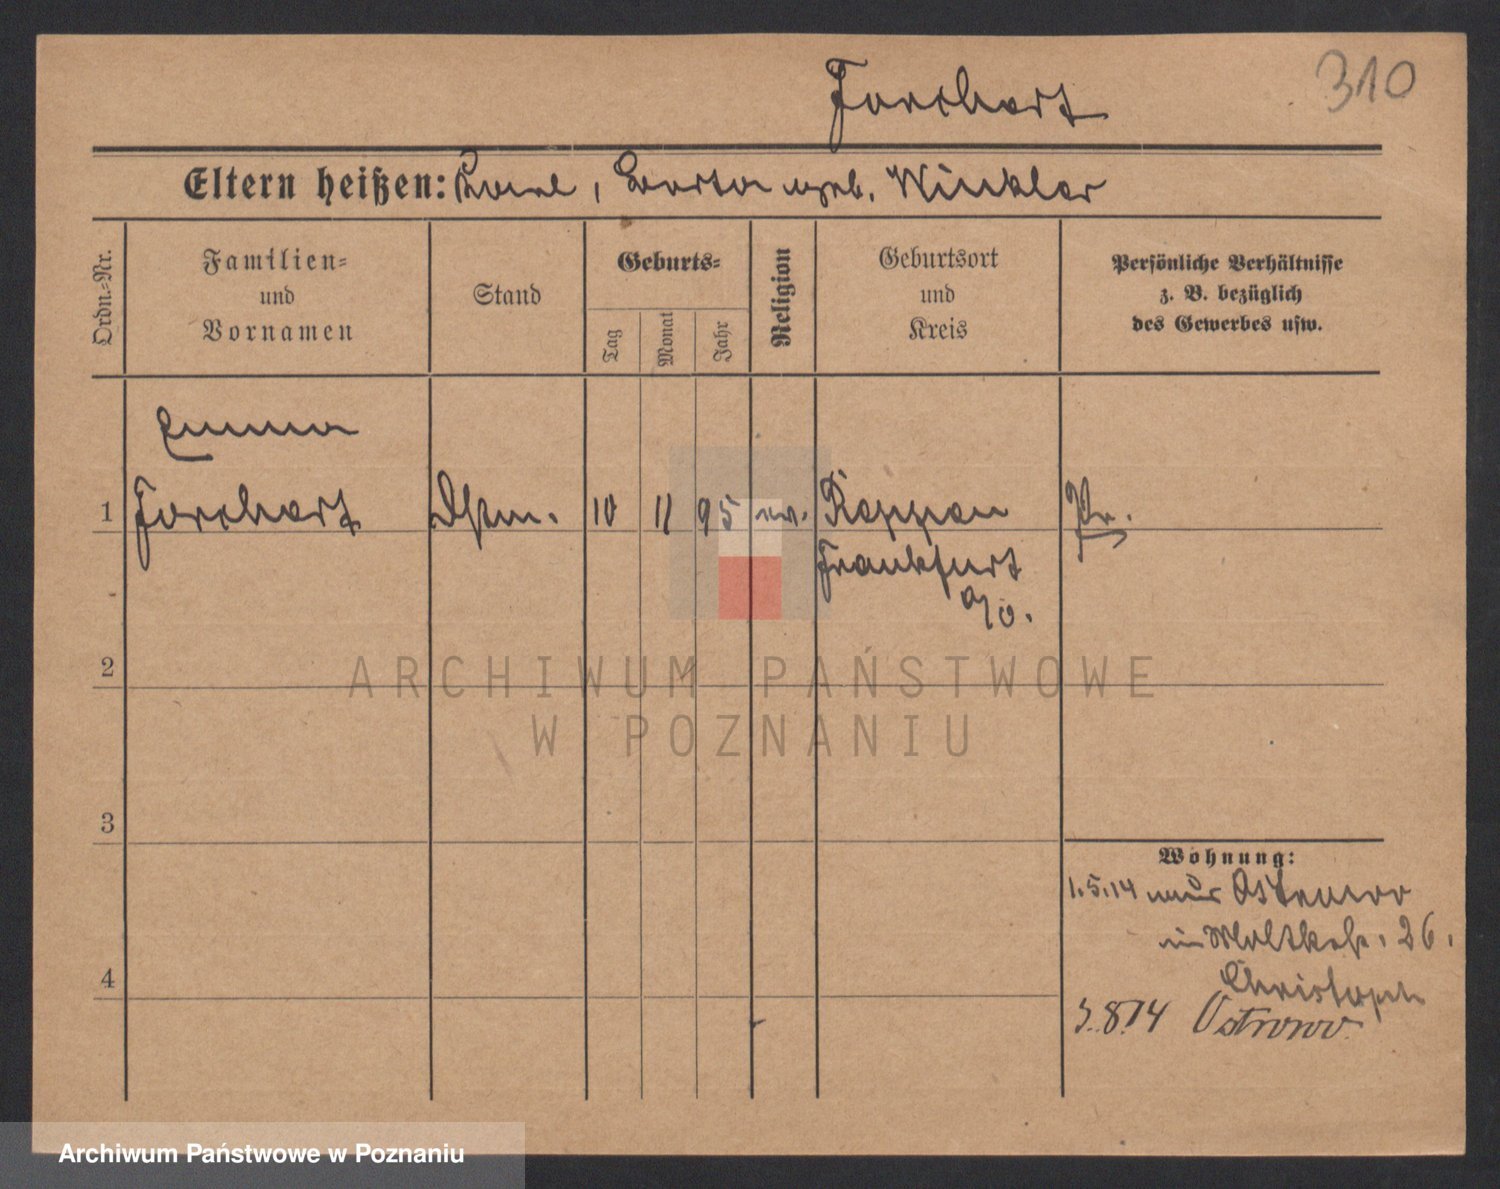 310
Forchert
Eltern heißen: Karl, Berta geb. Winkler
Ordn.-Nr.
Familien-
und
Vornamen
Stand
Geburts-
Tag
Monat
Jahr
Religion
Geburtsort
und
Kreis
Persönliche Verhältnisse
z. B. bezüglich
des Gewerbes usw.
Emma
1 Forchert Dstm. 10 11 95 ev. Reppen Pr.
Frankfurt
a/o.
2
3
4
Wohnung:
1.5.14 Ostrowo
Moltkestr. 26.
Christoph
3.8.14 Ostrowo
ARCHIWUM PAŃSTWOWE
W POZNANIU
Archiwum Państwowe w Poznaniu